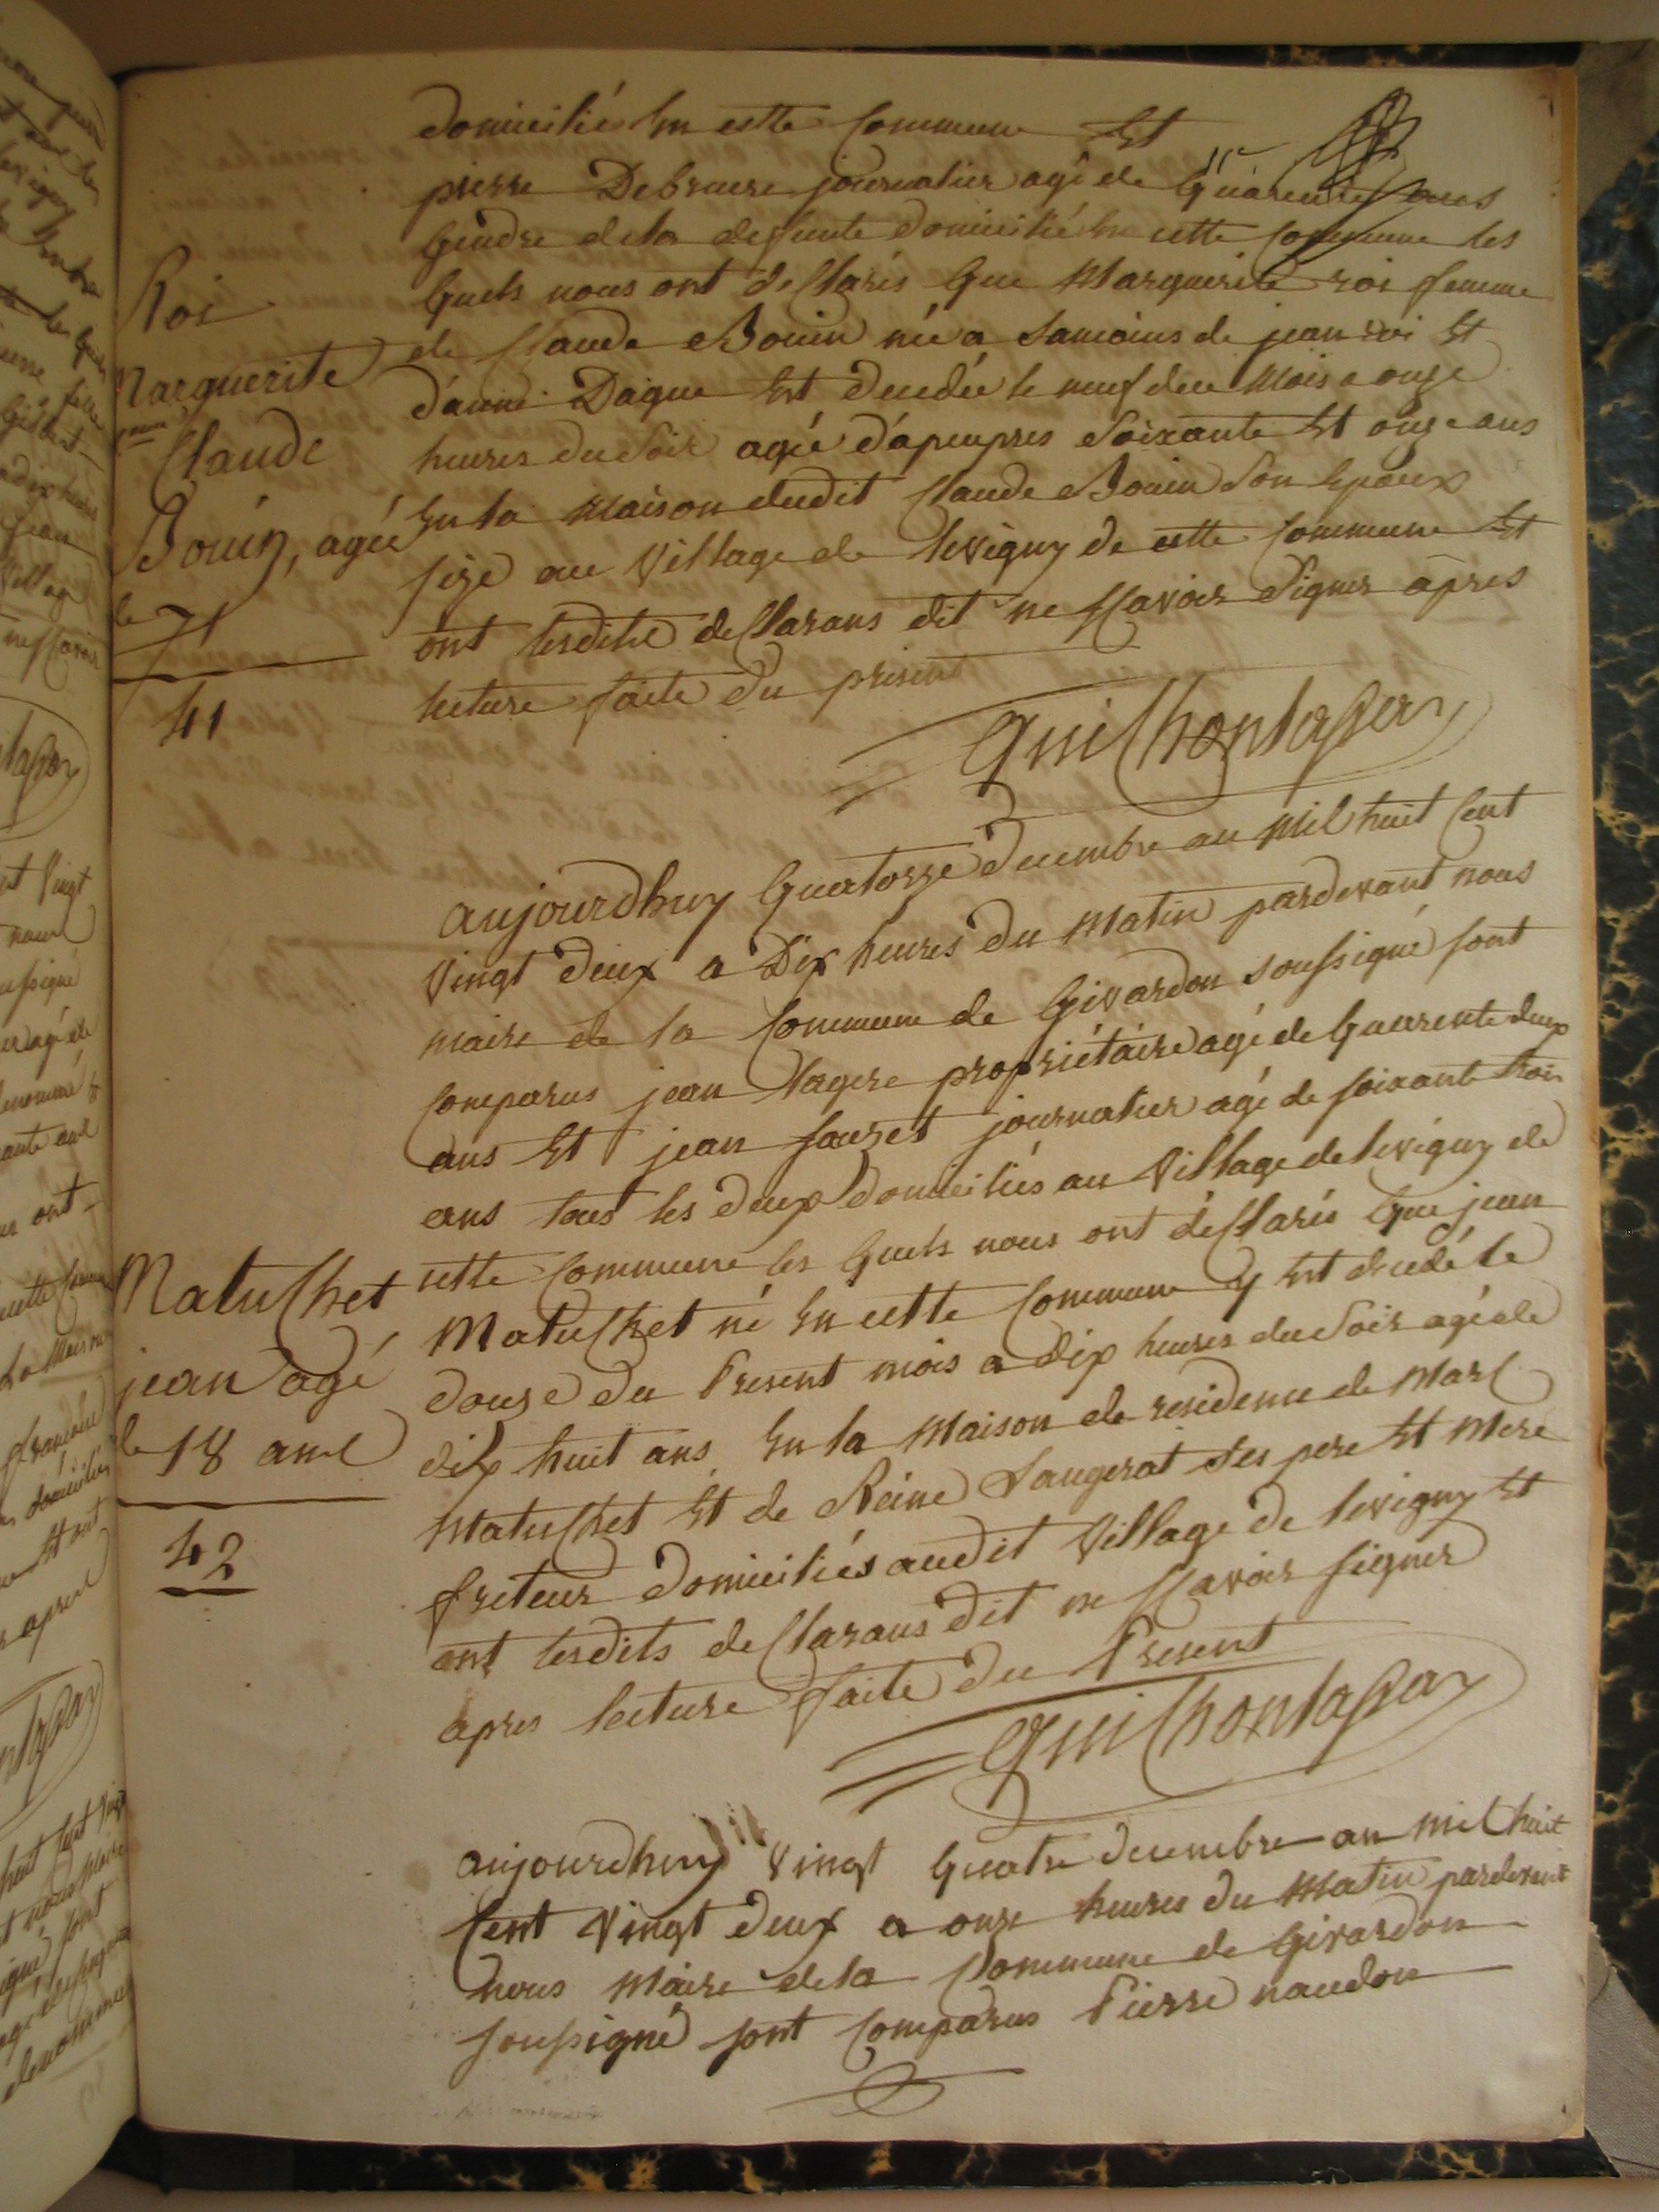 domicilié En cette Commune Et
pierre Debruere journalier agé de Quarente ans
Gendre de la defunte domicilié En cette Commune les
Quels nous ont desClarés Que Marguerite roi femme
de Claude Bouin née a Sancoins de jean roi Et
d'anne Dague Est decedée le neuf du Mois a onze
heures du Soir agée d'apeupres Soixante Et onze ans
En la Maison dudit Claude Bouin Son Epoux
size au Village de levigny de cette Commune Et
ont lesdits deClarans dit ne sCavoir Signer apres
lecture faite du present
Roi
Marguerite
femme
Claude
Bouin, agée
de 71
41
GuilChontason
aujourdhuy Quatorze decembre an Mil huit Cent
Vingt deux a Dix heures du Matin pardevant nous
maire de la Commune de Givardon soussigné sont
Comparus jean lagere propriétaire agé de Quarente deux
ans Et jean fauret journalier agé de soixante trois
ans tous les deux domiciliés au Village de levigny de
cette Commune les Quels nous ont déClarés Que jean
MatuChet né En cette Commune y Est decedé le
douze du Present mois a dix heures du Soir agé de
dix huit ans En la Maison de residence de MarC
MatuChet Et de Reine Laugerat Ses pere Et Mere
freteur domiciliés audit Village de levigny Et
ont lesdits deClarans dit ne sCavoir signer
apres lecture faite du Present
MatuChet
jean agé
de 18 ans
42
GuilChontason
aujourdhuy Vingt Quatre decembre an mil huit
Cent Vingt deux a onze heures du Matin pardevant
nous Maire de la Commune de Givardon
soussigné sont Comparus Pierre naudon